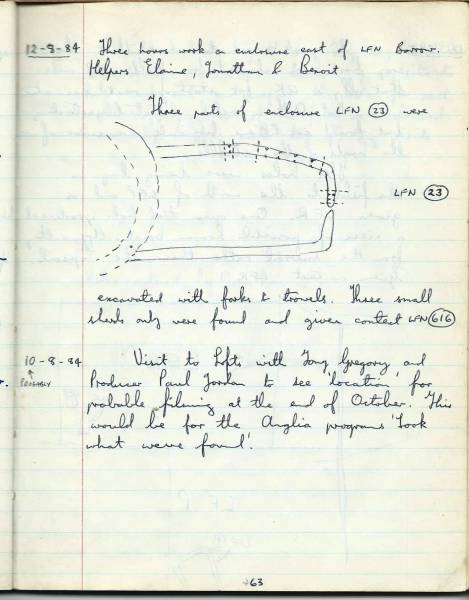 12-8-84 Three hours work on enclosure east of LFN Barrow.
Helpers Elaine, Jonathan & Benoit
Three parts of enclosure LFN 23 were
LFN 23
excavated with forks & trowels. Three small
sherds only were found and given context LFN 616
10-8-84 Visit to Lofts with Tony Gregory and
PROBABLY Producer Paul Jordan to see 'location' for
probable filming at the end of October. This
would be for the Anglia programs 'Look
what weve found'.
63